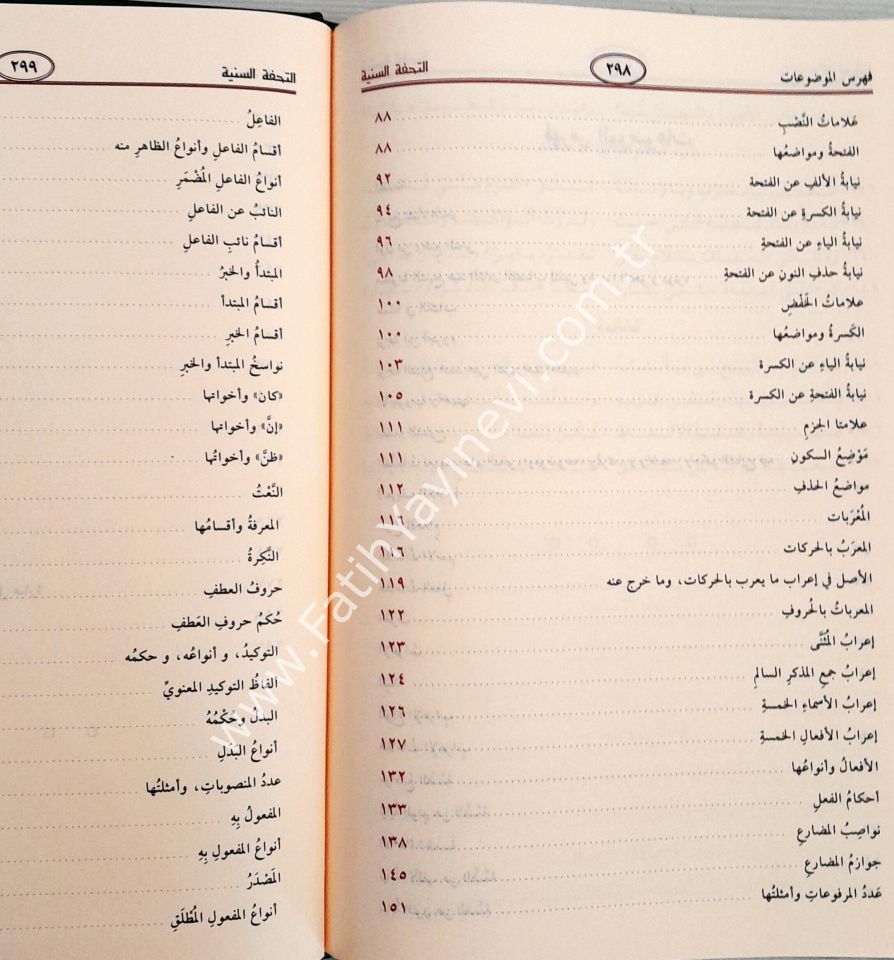 فهرس الموضوعات ٢٩٨ التحفة السنية
عَلاماتُ النَّصْبِ ٨٨
الفتحةُ ومواضعُها ٨٨
نيابةُ الألفِ عن الفتحة ٩٢
نيابةُ الكسرةِ عن الفتحة ٩٤
نيابةُ الياءِ عن الفتحةِ ٩٦
نيابةُ حذفِ النونِ عن الفتحةِ ٩٨
علاماتُ الخَفْضِ ١٠٠
الكَسرةُ ومواضعُها ١٠٠
نيابةُ الياءِ عن الكسرة ١٠٣
نيابةُ الفتحةِ عن الكسرة ١٠٥
علامتا الجزمِ ١١١
مَوْضِعُ السكونِ ١١١
مواضعُ الحذفِ ١١٢
المُعْرَبات ١١٦
المعرَبُ بالحركات ١١٦
الأصل في إعراب ما يعرب بالحركات، وما خرج عنه ١١٩
المعرباتُ بالحُروفِ ١٢٢
إعرابُ المُثَنَّى ١٢٣
إعرابُ جمعِ المذكرِ السالمِ ١٢٤
إعرابُ الأسماءِ الخمسةِ ١٢٦
إعرابُ الأفعالِ الخمسةِ ١٢٧
الأفعالُ وأنواعُها ١٣٢
أحكامُ الفعلِ ١٣٣
نواصِبُ المضارعِ ١٣٨
جوازمُ المضارعِ ١٤٥
عَددُ المرفوعاتِ وأمثلتُها ١٥١
التحفة السنية ٢٩٩
الفاعِلُ
أقسامُ الفاعلِ وأنواعُ الظاهرِ منه
أنواعُ الفاعلِ المُضْمَرِ
النائبُ عن الفاعلِ
أقسامُ نائبِ الفاعلِ
المبتدأُ والخبرُ
أقسامُ المبتدأ
أقسامُ الخبرِ
نواسخُ المبتدأ والخبرِ
«كان» وأخواتها
«إنَّ» وأخواتها
«ظنَّ» وأخواتُها
النَّعْتُ
المعرفةُ وأقسامُها
النَّكِرةُ
حروفُ العطفِ
حُكمُ حروفِ العَطفِ
التوكيدُ، و أنواعُه، و حكمُه
ألفاظُ التوكيدِ المعنويِّ
البدلُ وحُكْمُهُ
أنواعُ البَدَلِ
عددُ المنصوباتِ، وأمثلتُها
المفعولُ بِهِ
أنواعُ المفعولِ بِهِ
المَصْدَرُ
أنواعُ المفعولِ المُطْلَقِ
www.FatihYayinevi.com.tr